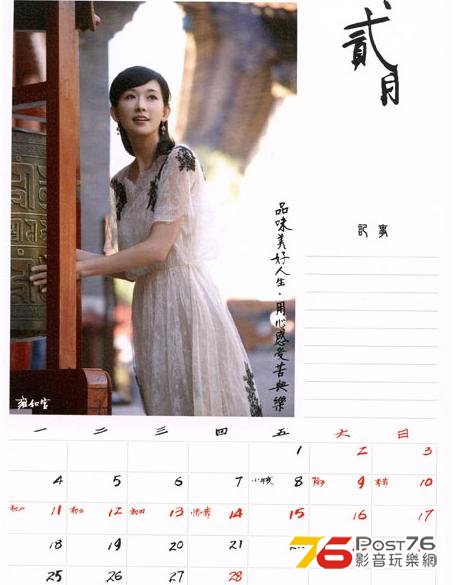 貳月
記事
品味美好人生，用心感受苦與樂
雍和宮
一 二 三 四 五 六 日
1 2 3
4 5 6 7 小年夜 8 除夕 9 春節 10
初二 11 初三 12 初四 13 情人節 14 15 16 17
18 19 20 21
25 26 27 28
76 POST76
影音玩樂網